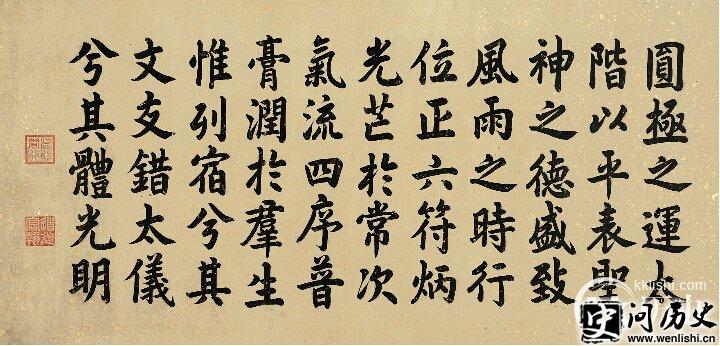 圓極之運太
階以平表聖
神之德盛致
風雨之時行
位正六符炳
光芒於常次
氣流四序普
膏潤於羣生
惟列宿兮其
文交錯太儀
兮其體光明
kklishi.com
问历史
www.wenlishi.cn